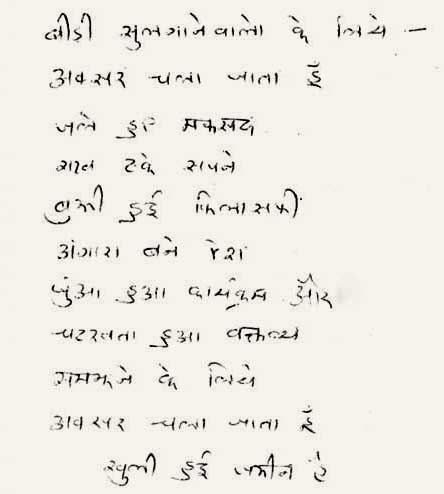 बीड़ी सुलगानेवालो के लिये —
अक्सर चला जाता हूँ
जले हुए मकसद
राख ढके सपने
बुझी हुई फिलासफी
अंगारा बने देश
धुंआ हुआ कार्यक्रम और
चटखता हुआ वक्तव्य
समझने के लिये
अक्सर चला जाता हूँ
खुली हुई जमीन है